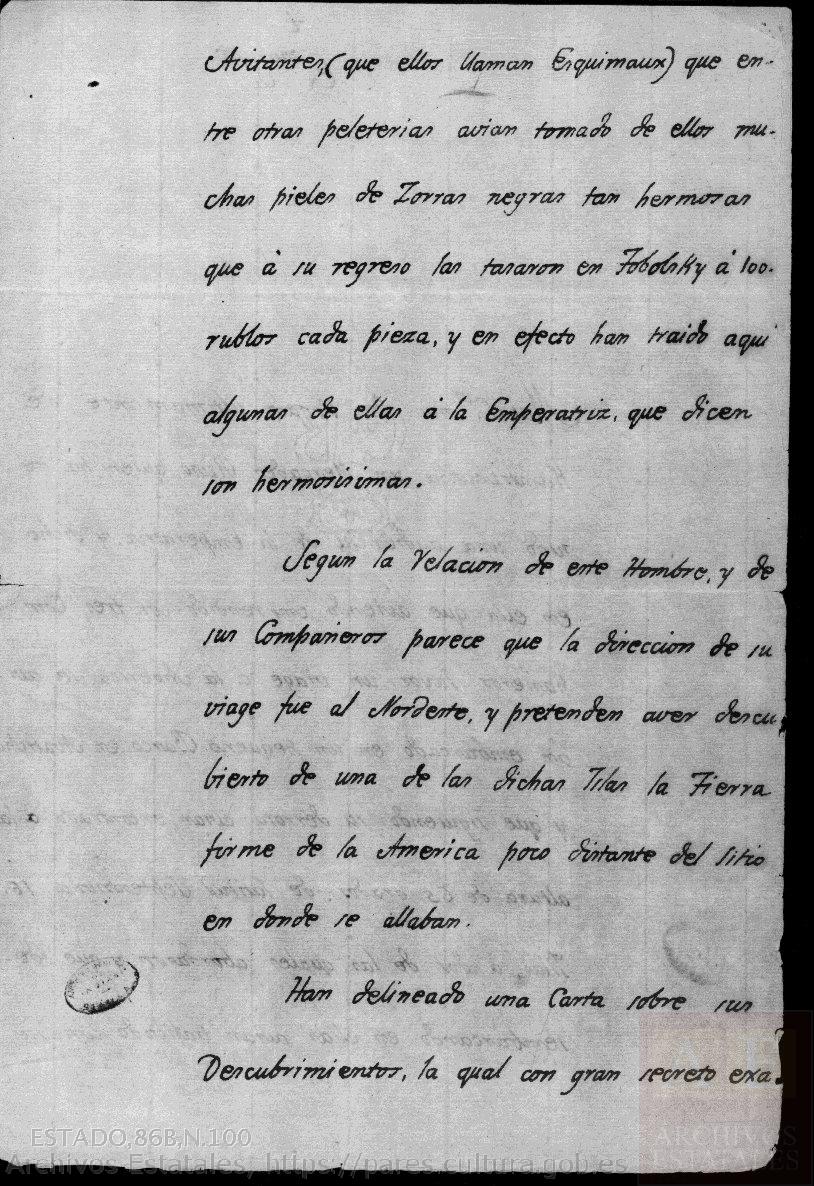 Avitantes, (que ellos llaman Esquimaux) que en-
tre otras peleterias avian tomado de ellos mu-
chas pieles de Zorras negras tan hermosas
que à su regreso las tasaron en Tobolsky à 100.
rublos cada pieza, y en efecto han traido aqui
algunas de ellas à la Emperatriz, que dicen
son hermosisimas.
Segun la relacion de este Hombre, y de
sus Compañeros parece que la direccion de su
viage fue al Nordeste, y pretenden aver descu
bierto de una de las dichas Islas la Tierra
firme de la America poco distante del sitio
en donde se allaban.
Han delineado una Carta sobre sus
Descubrimientos, la qual con gran secreto exa
ESTADO,86B,N.100
Archivos Estatales, https://pares.cultura.gob.es
ARCHIVOS
ESTATALES